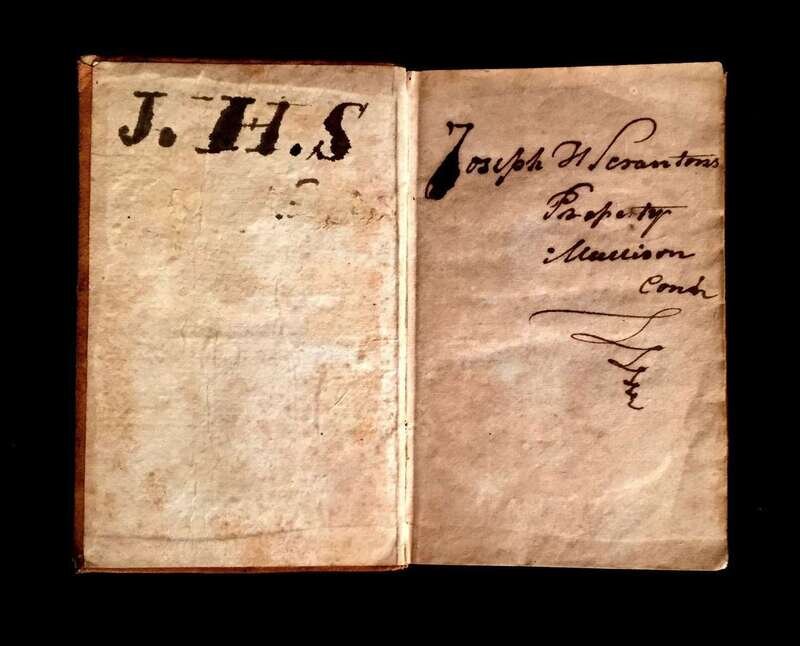 J. H. S
Joseph H Scrantons
Property
Madison
Conn